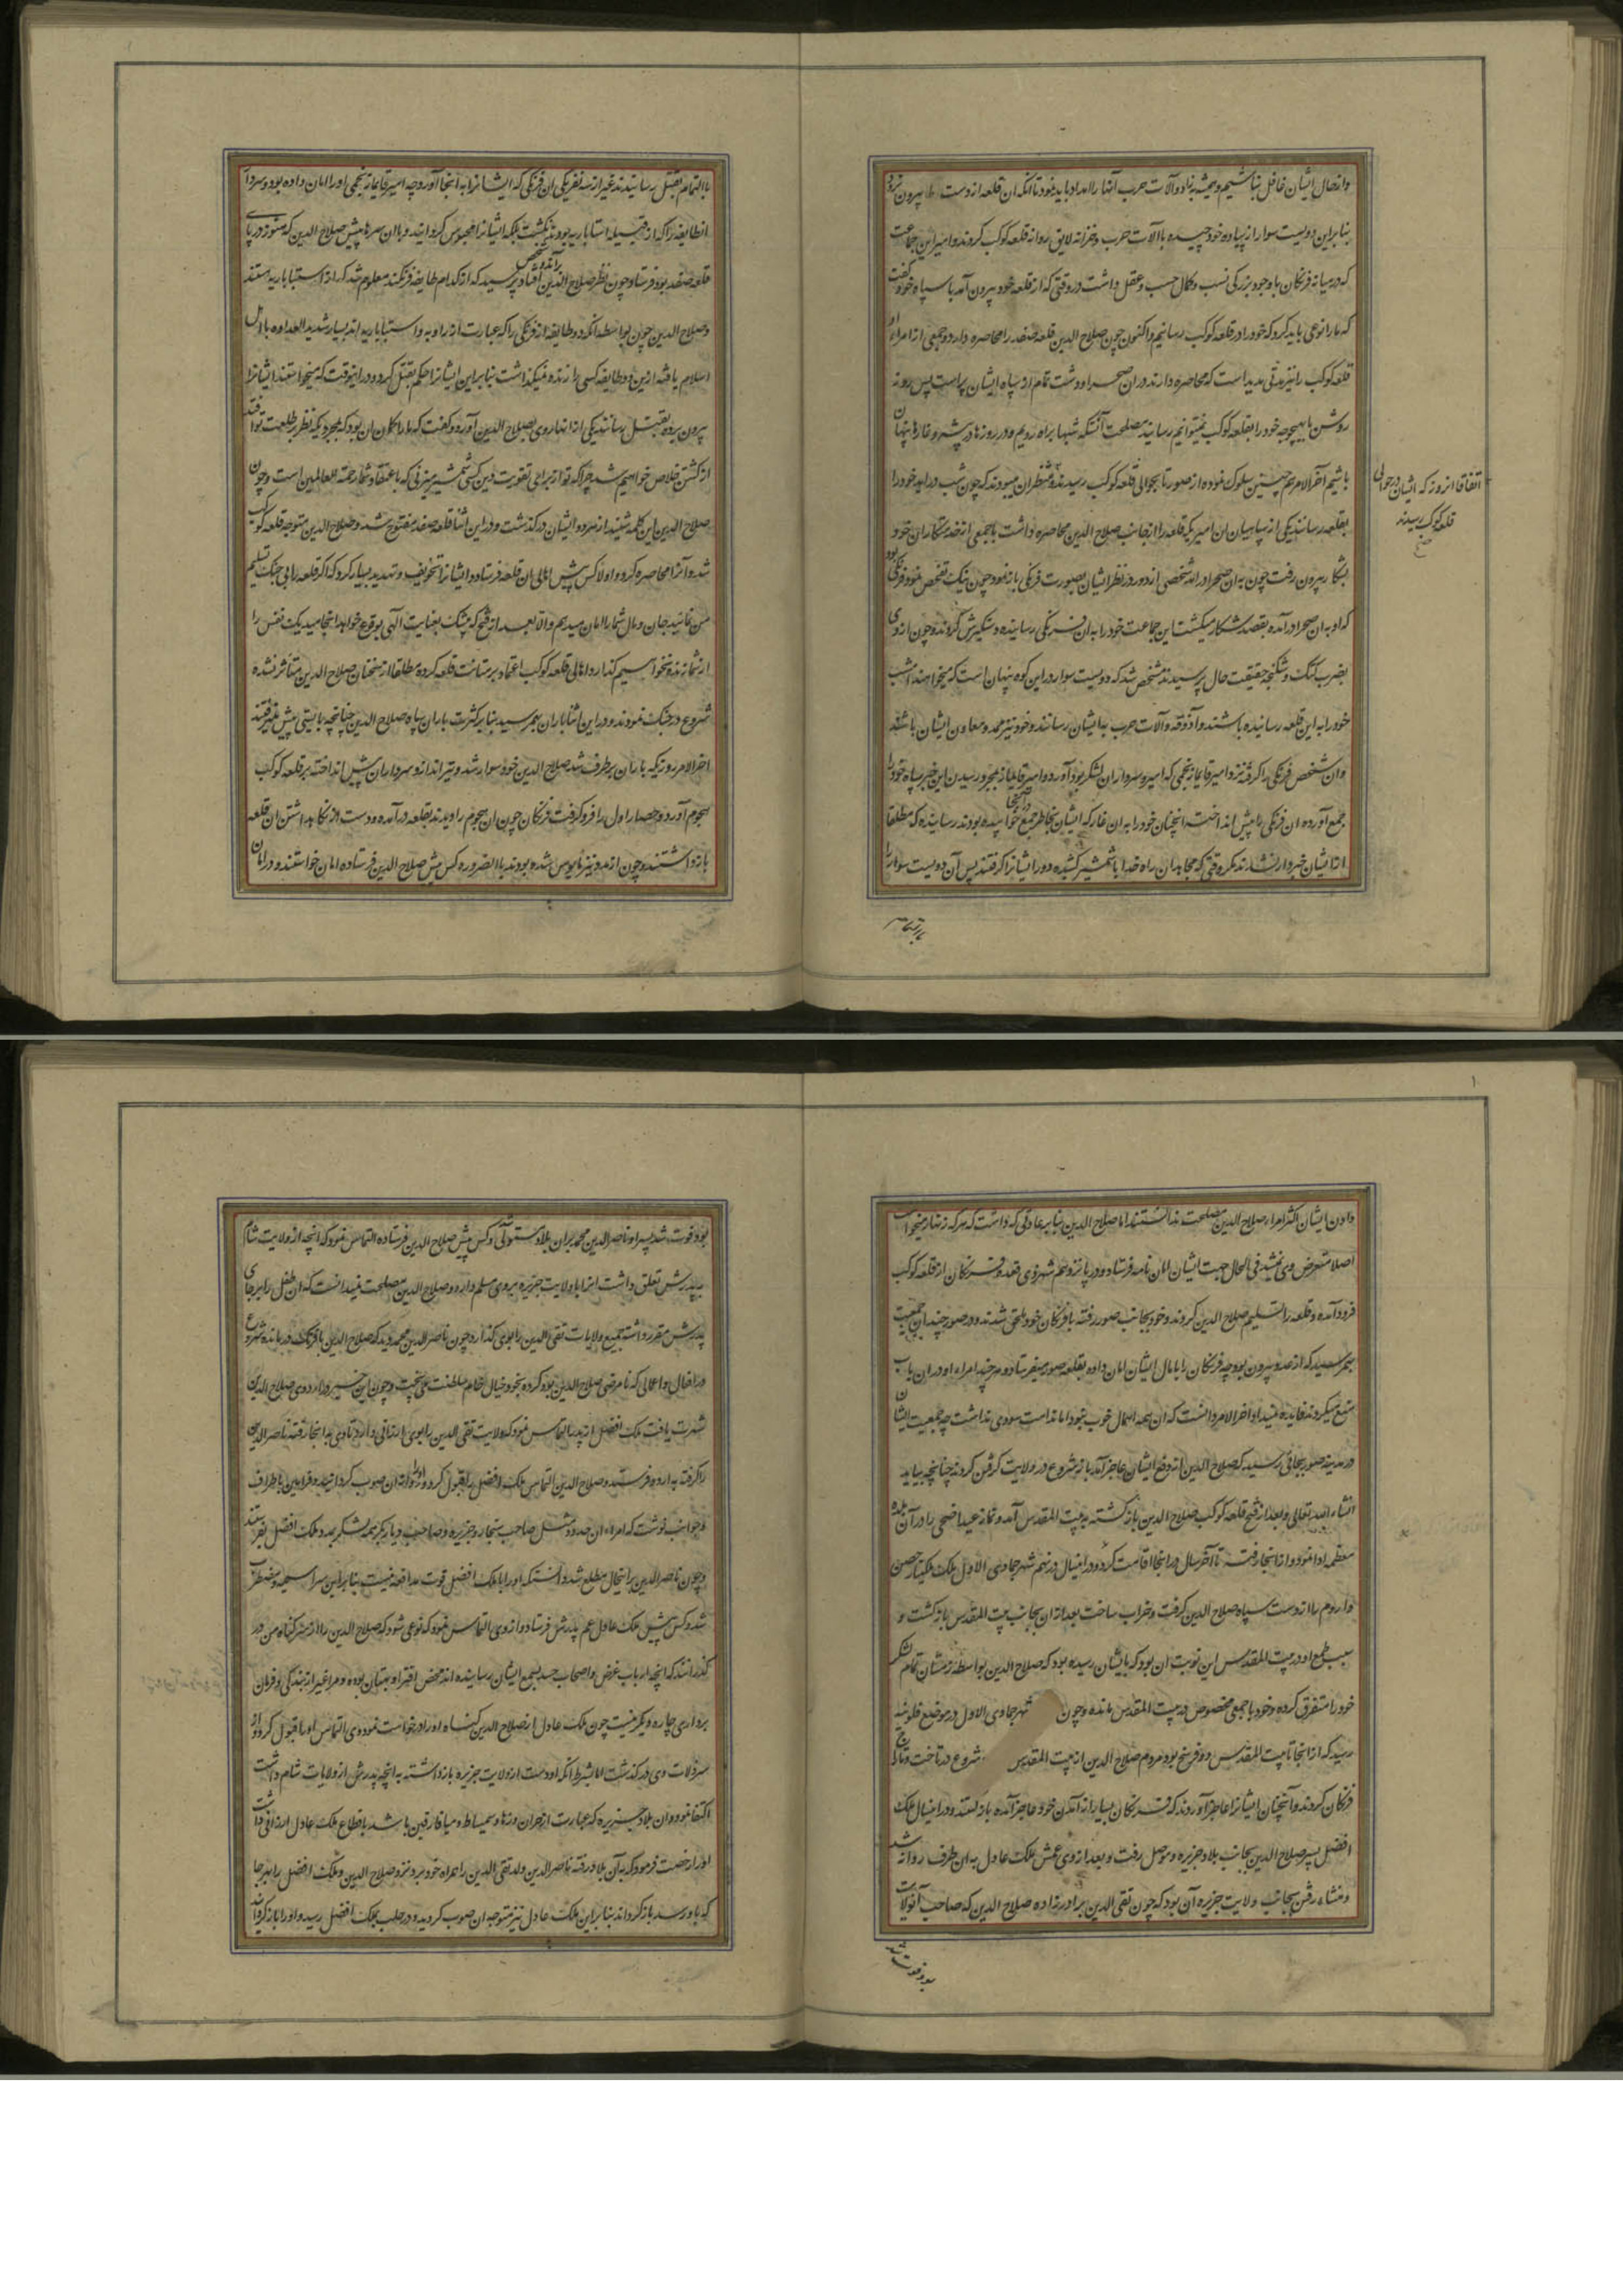 وازحال ایشان غافل نباشیم و همیشه بزاد و آلات حرب آنها را امداد باید نمود تا آنکه ان قلعه از دست ما بیرون نرود
بنابراین دویست سوار از پیاده خود چیده با آلات حرب و خزانه لایق روانه قلعه کوکب کردند و امیر این جماعت
که در میانه فرنگان با وجود بزرگی نسب و کمال حسب و عقل داشت در وقتی که از قلعه خود بیرون آمد با سپاه خود گفت
که ما را نوعی باید کرد که خود را در قلعه کوکب رسانیم و اکنون چون صلاح الدین قلعه صفد را محاصره دارد و جمعی از امراء او
قلعه کوکب را نیز مدتی مدید است که محاصره دارند و ران صحرا و دشت تمام از سپاه ایشان پر است پس روز
روشن ما بهیچوجه خود را بقلعه کوکب نمیتوانیم رسانید مصلحت آنستکه شبها براه رویم و در روزها در پشه و غارها پنهان
باشیم آخر الامر هم چنین سلوک نموده از صور تا بحوالی قلعه کوکب رسیدند و منتظر ان میبودند که چون شب دراید خود را
بقلعه رسانند یکی از سپاهیان ان امیر که قلعه را از جانب صلاح الدین محاصره داشت با جمعی از خدمتکاران خود
بشکار بیرون رفت چون به ان صحرا درامد شخصی از دور در نظر ایشان بصورت فرنگی باز نمود چون نیک تفحص نمود فرنگی بود
که او به ان صحرا درآمده بقصد شکار میگشت این جماعت خود را به ان فرنگی رسانیده دستگیرش کردند و چون از وی
بضرب کتک و شکنجه حقیقت حال پرسیدند مشخص شد که دویست سوار در این کوه پنهان است که میخواهند امشب
خود را به این قلعه رسانیده باشند و آذوقه و آلات حرب به ایشان رسانند و خود نیز ممد و معاون ایشان باشند
وان شخص فرنگی را گرفته نزد امیر قایماز نجمی که امیر و سردار ان لشکر بود آورد و امیر قایماز بمجرد رسیدن این خبر سپاه خود را
جمع آورده ان فرنگی را پیش انداخت انچنان خود را به ان غار که ایشان بخاطر جمع در آنجا خوابیده بودند رسانیده که مطلقا
از ایشان خبردار نشدند مگر وقتی که مجاهدان راه خدا با شمشیر کشیده دور ایشانرا گرفتند پس آن دویست سوار را
اتفاقا انروز که ایشان در حوالی
قلعه کوکب رسیدند
با التمام
با التمام بقتل رسانیدند غیر از سه نفر یکی ان فرنگی که ایشانرا به انجا آورد چه امیر قایماز نجمی او را امان داده بود و سردار
انطایفه را که از قبیله استاباریه بودند نکشت بلکه ایشانرا محبوس گردانید و با ان سرها پیش صلاح الدین که هنوز در پای
قلعه صفد بود فرستاد چون نظر صلاح الدین بر آندو شخص افتاد پرسید که از کدام طایفه فرنگند معلوم شد که از استباباریه هستند
و صلاح الدین چون بواسطه آنکه دو طایفه از فرنگی را که عبارت از راویه و استباباریه اند بسیار شدید العداوه با اهل
اسلام یافته ازین دو طایفه کسی را زنده نمیگذاشت بنابراین ایشانرا حکم بقتل کرد و در انوقت که میخواستند ایشانرا
بیرون برده بقتل رسانند یکی از انها روی بصلاح الدین آورد و گفت که ما را گمان ان بود که بمجردیکه نظر بر طلعت تو افتد
از کشتن خلاص خواهیم شد چرا که تو از برای تقویت دین کسی شمشیر میزنی که باعتقاد شما رحمة للعالمین است و چون
صلاح الدین این کلمه شنید از سر دو ایشان درگذشت و در این اثنا قلعه صفد مفتوح شد و صلاح الدین متوجه قلعه کوکب
شد و آنرا محاصره کرد و اولا کس پیش اهالی ان قلعه فرستاد و ایشانرا تخویف و تهدید بسیار کرد که اگر قلعه را بی جنگ تسلیم
من نمائید جان و مال شما را امان میدهم والا بعد از فتح که بیشک بعنایت الهی بوقوع خواهد انجامید یک نفس را
از شما زنده نخواهیم گذارد اهالی قلعه کوکب اعتماد بر متانت قلعه کرده مطلقا از سخنان صلاح الدین متأثر نشده
شروع در جنگ نمودند و در این اثنا باران بهم رسید بنابر کثرت باران سپاه صلاح الدین چنانچه بایستی پیش نمیرفتند
اخر الامر روزیکه باران برطرف شد صلاح الدین خود سوار شد و تیرانداز و سرداران پیش انداخته بر قلعه کوکب
هجوم آورد و حصار اول را فرو گرفت فرنگان چون ان هجوم را دیدند بقلعه درآمده و دست از نگاهداشتن ان قلعه
بازداشتند و چون از مدد نیز مایوس شده بودند با الضروره کس پیش صلاح الدین فرستاده امان خواستند و در امان
دادن ایشان اکثر امراء صلاح الدین مصلحت ندانستند اما صلاح الدین بنابر عادتی که داشت که هر که زنهار میخواست
اصلا متعرض وی نمیشد فی الحال جهت ایشان امان نامه فرستاد و در پانزدهم شهر ذی قعده فرنگان از قلعه کوکب
فرود آمده و قلعه را تسلیم صلاح الدین کردند و خود بجانب صور رفته با فرنگان خود ملحق شدند و در صور چندان جمعیت
بهم رسید که از حد بیرون بود چه فرنگان را با مال ایشان امان داده بقلعه صور میفرستاد و هر چند امراء او در ان باب
منع میکردند فایده نمیداد اخر الامر دانست که ان همه اهمال خوب نبود اما ندامت سودی نداشت چه جمعیت ایشان
در مدینه صور بجائی رسید که صلاح الدین از دفع ایشان عاجز آمد باز شروع در ولایت گرفتن کردند چنانچه بیاید
انشاء الله تعالی و بعد از فتح قلعه کوکب صلاح الدین بازگشته به بیت المقدس آمد و نماز عید اضحی را در آن بلده
معظمه ادا نمود و از انجا رفت تا آخر سال در انجا اقامت کرد و در اینسال در نهم شهر جمادی الاول ملک حصن
داروم را از دست سپاه صلاح الدین گرفت و خراب ساخت بعد از ان بجانب بیت المقدس بازگشت و
سبب طمع او در بیت المقدس این نوبت ان بود که بایشان رسیده بود که صلاح الدین بواسطه زمستان تمام لشکر
خود را متفرق کرده و خود با جمعی مخصوص در بیت المقدس مانده و چون شهر جمادی الاول در موضع قلونیه
رسید که از انجا تا بیت المقدس دو فرسخ بود مردم صلاح الدین از بیت المقدس شروع در تاخت و تاراج
فرنگان کردند و آنچنان ایشانرا عاجز آوردند که فرنگان بسیار از آمدن خود عاجز آمده بازگشتند و در اینسال ملک
افضل پسر صلاح الدین بجانب بلاد جزیره و موصل رفت و بعد از وی عمش ملک عادل به ان طرف روانه شد
و منشاء رفتن بجانب ولایت جزیره آن بود که چون تقی الدین برادرزاده صلاح الدین که صاحب آنولایت
بود فوت شد
بود فوت شد پسر او ناصر الدین محمد بران بلاد مستولی و کس پیش صلاح الدین فرستاده التماس نمود که انچه از ولایت شام
به پدرش تعلق داشت انرا با ولایت جزیره بروی مسلم دارد و صلاح الدین مصلحت نمیدانست که ان طفل را بر جای
پدرش مقرر داشته جمیع ولایات تقی الدین را بوی گذارد چون ناصر الدین محمد دید که صلاح الدین با فرنگ درمانده شروع
در افعال و اعمالی که نا مرضی صلاح الدین بود کرده بخود خیال خام سلطنت می پخت و چون این خبر در اردوی صلاح الدین
شهرت یافت ملک افضل از پدر التماس نمود که ولایت تقی الدین را بوی ارزانی دارد تا وی به انجا رفته ناصر الدین
را گرفته به اردو فرستد و صلاح الدین التماس ملک افضل را قبول کرده او را روانه ان صوب گردانید و فرامین باطراف
و جوانب نوشت که امراء ان حدود مثل صاحب سنجار و جزیره و صاحب دیاربکر همه لشکر بمدد ملک افضل بفرستند
و چون ناصر الدین بر اینحال مطلع شد دانست که او را با ملک افضل قوت مدافعه نیست بنابراین سراسیمه و مضطرب
شد و کس پیش ملک عادل عم پدرش فرستاد و از وی التماس نمود که نوعی شود که صلاح الدین را از سر گناه من در
گذرانند که انچه ارباب غرض و اصحاب حسد بسمع ایشان رسانیده اند محض افترا و بهتان بوده و مرا غیر از بندگی و فرمان
برداری چاره دیگر نیست چون ملک عادل از صلاح الدین گناه او را درخواست نمود وی التماس او را قبول کرد و از
سر زلات وی درگذشت اما بشرط انکه او دست از ولایت جزیره بازداشته به انچه پدرش از ولایات شام داشت
اکتفا نمود و ان بلاد جزیره که عبارت از حران و رها و سمیساط و میافارقین باشد باقطاع ملک عادل ارزانی داشت
او را رخصت فرمود که به آن بلاد رفته ناصر الدین ولد تقی الدین را همراه خود برد نزد صلاح الدین و ملک افضل را بهرجا
که باو رسد باز گرداند بنابراین ملک عادل نیز متوجه ان صوب گردید و در حلب بملک افضل رسید و او را بازگردانید